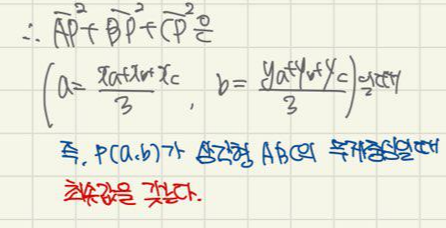 ∴ AP² + BP² + CP² 은
(a = (xa+xb+xc)/3 , b = (ya+yb+yc)/3) 일때
즉, P(a,b)가 삼각형 ABC의 무게중심일때
최솟값을 갖는다.